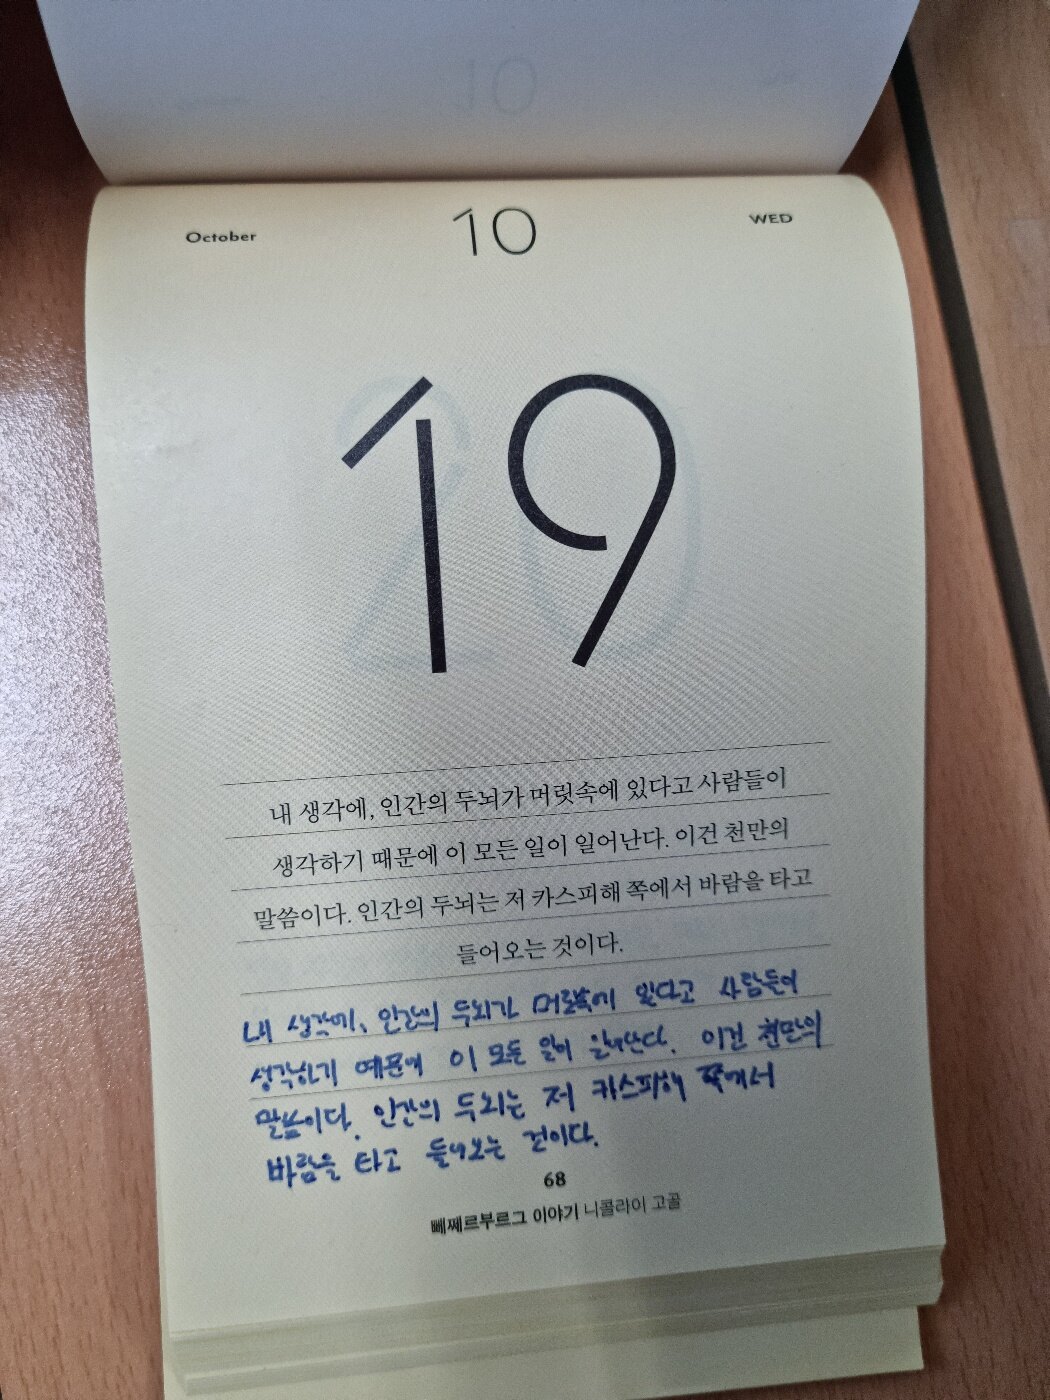 October 10 WED
19
내 생각에, 인간의 두뇌가 머릿속에 있다고 사람들이
생각하기 때문에 이 모든 일이 일어난다. 이건 천만의
말씀이다. 인간의 두뇌는 저 카스피해 쪽에서 바람을 타고
들어오는 것이다.
내 생각에, 인간의 두뇌가 머릿속에 있다고 사람들이
생각하기 때문에 이 모든 일이 일어난다. 이건 천만의
말씀이다. 인간의 두뇌는 저 카스피해 쪽에서
바람을 타고 들어오는 것이다.
68
뻬쩨르부르그 이야기 니콜라이 고골